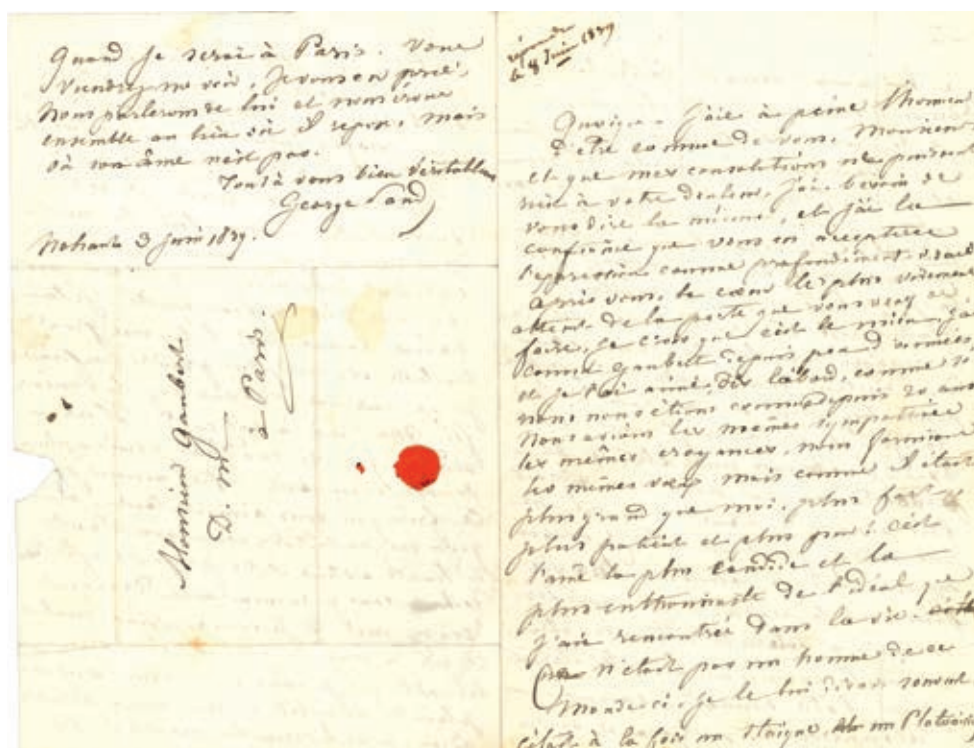 Quand je serai à Paris. Vous
viendrez me voir, je vous en prie,
nous parlerons de lui et nous irons
ensemble au lieu où il repose, mais
où son âme n'est pas.
Tout à vous bien véritablement
George Sand
Nohant 3 juin 1839.
Monsieur Gaubert
D. m.
à Paris.
le 8 Juin 1839
Quoique j'aie à peine l'honneur
d'être connue de vous, Monsieur
et que mes consolations ne puissent
rien à votre douleur, j'ai besoin de
vous dire la mienne, et j'ai la
confiance que vous en accepterez
l'expression comme profondément vraie
Après vous, le cœur le plus vivement
atteint de la perte que vous venez de
faire, je crois que c'est le mien, j'ai
connu Gaubert depuis peu d'années,
et je l'ai aimé dès l'abord, comme si
nous nous étions connus depuis 20 ans
Nous avions les mêmes sympathies
les mêmes croyances, nous formions
les mêmes vœux, mais comme il était
plus grand que moi, plus
plus patient et plus pur! c'est
l'âme la plus candide et la
plus enthousiaste de l'idéal que
j'aie rencontrée dans la vie.
Ce n'était pas un homme de ce
monde-ci, je le lui disais souvent
c'était à la fois un Stoïque et un Platonicien